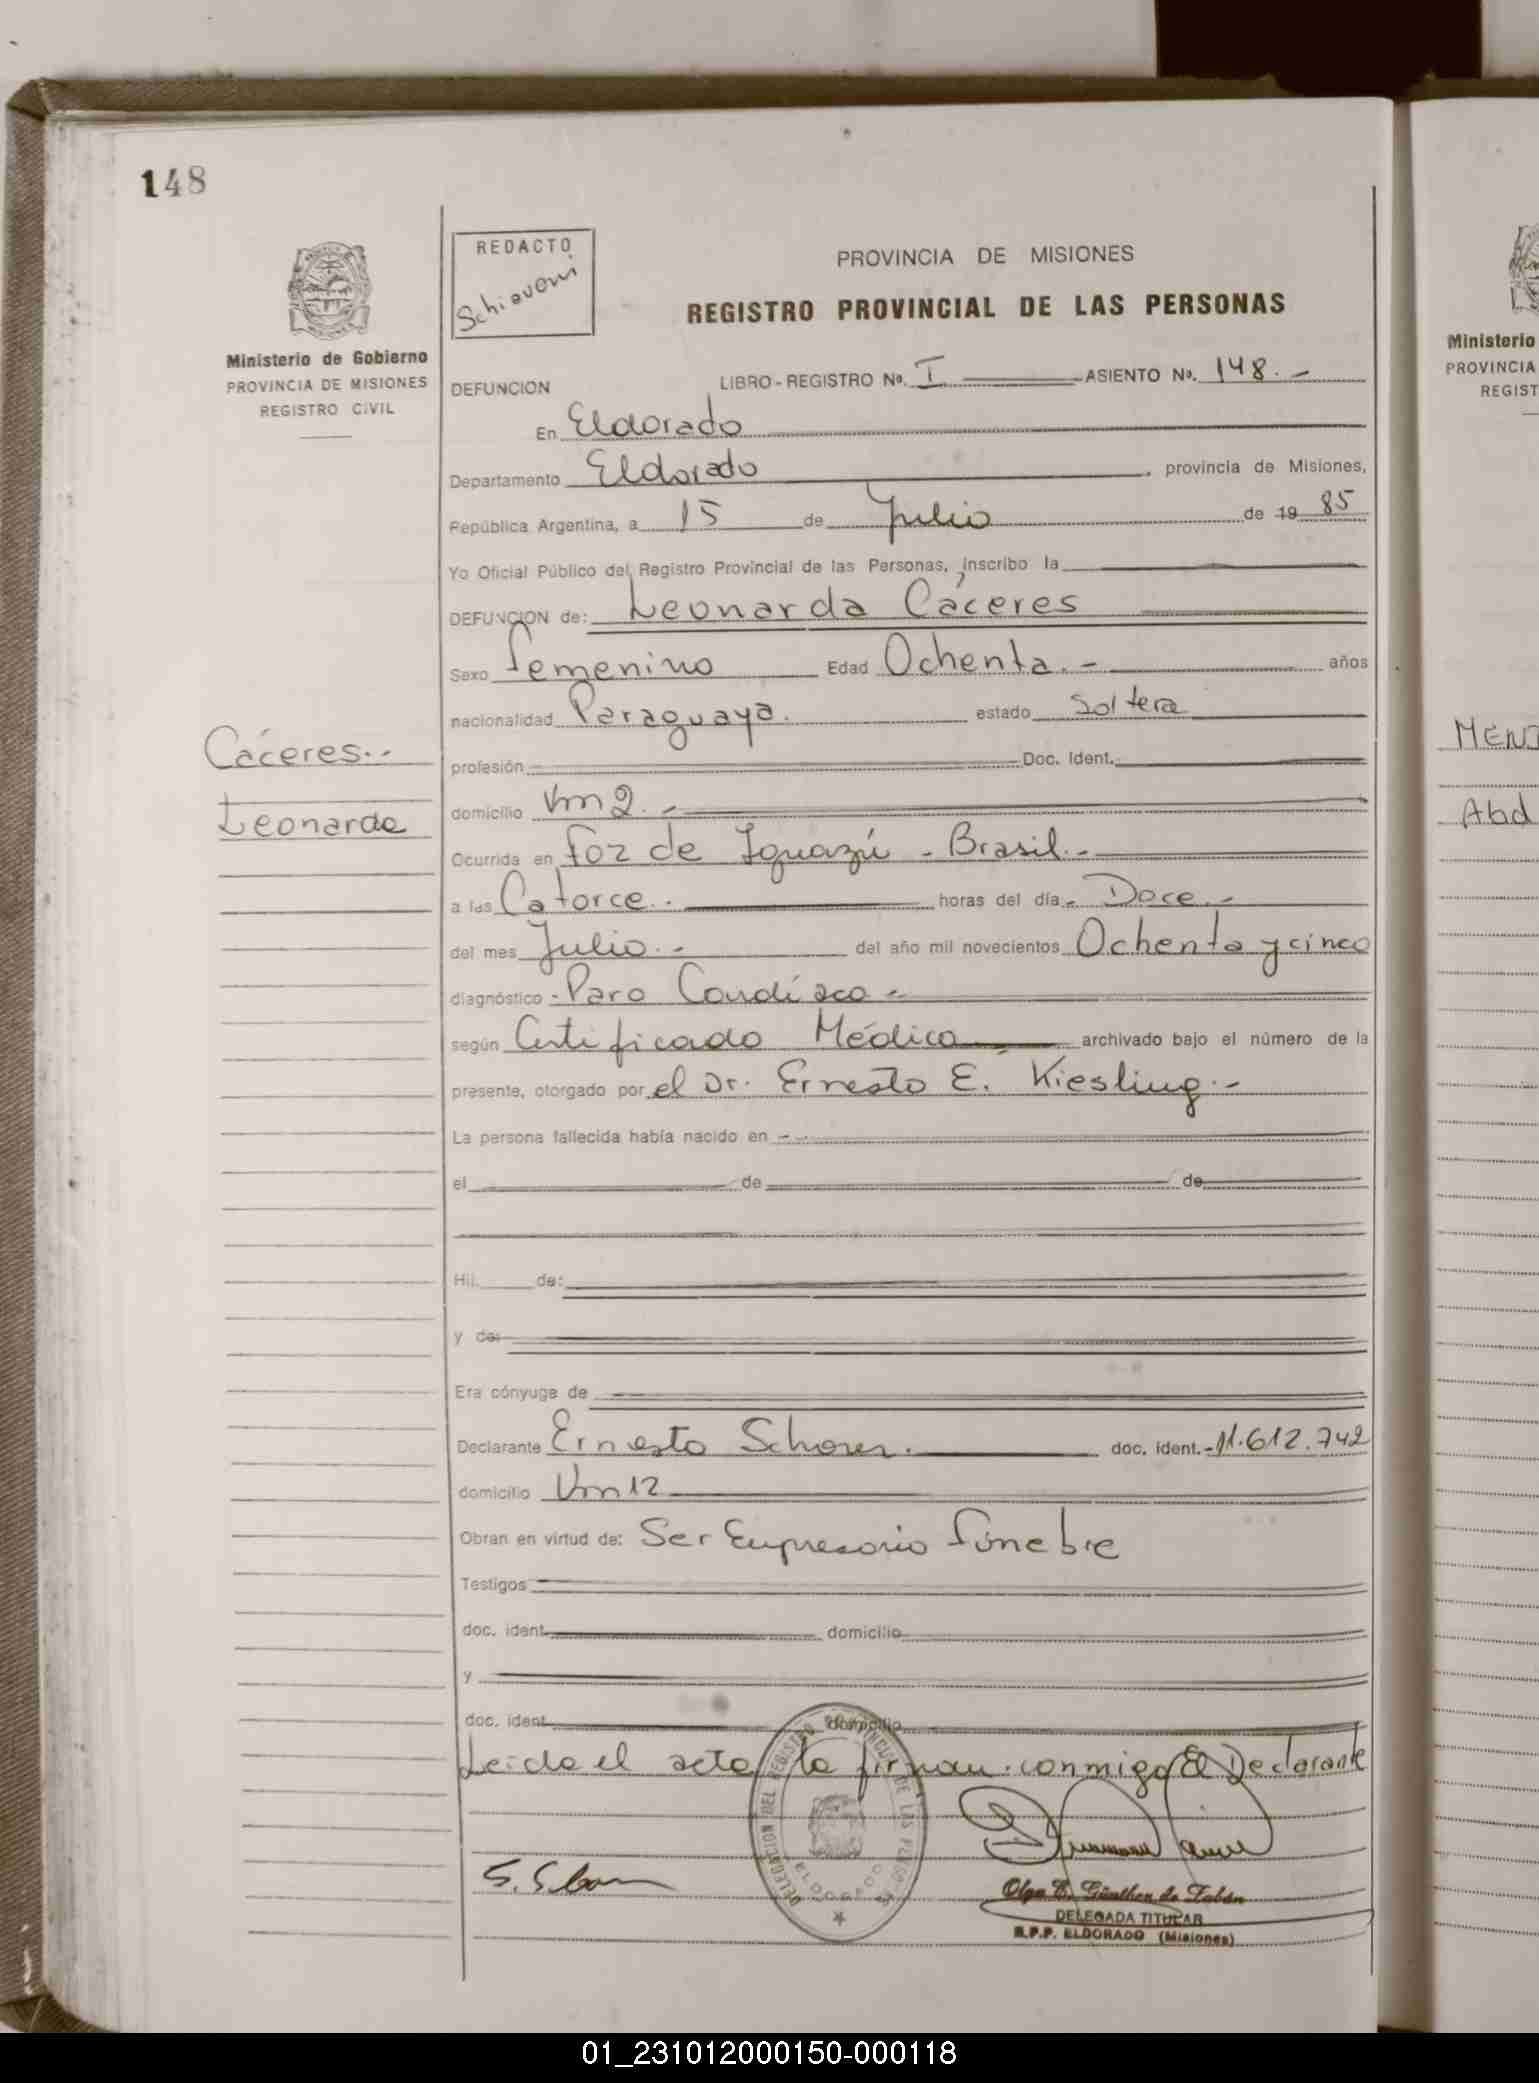 148
REDACTO
Schiavoni
PROVINCIA DE MISIONES
REGISTRO PROVINCIAL DE LAS PERSONAS
Ministerio de Gobierno
PROVINCIA DE MISIONES
REGISTRO CIVIL
DEFUNCION LIBRO-REGISTRO No. I ASIENTO No. 148.-
En Eldorado
Departamento Eldorado, provincia de Misiones,
República Argentina, a 15 de Julio de 19 85
Yo Oficial Público del Registro Provincial de las Personas, inscribo la
DEFUNCION de: Leonarda Cáceres
Sexo Femenino Edad Ochenta.- años
nacionalidad Paraguaya. estado Soltera
profesión Doc. Ident.
Cáceres.-
Leonarda
domicilio Km 2.-
Ocurrida en Foz de Iguazú - Brasil.-
a las Catorce.- horas del día.- Doce.-
del mes Julio.- del año mil novecientos Ochenta y cinco
diagnóstico - Paro Cardíaco -
según Certificado Médico archivado bajo el número de la
presente, otorgado por el Dr. Ernesto E. Kiesling.-
La persona fallecida había nacido en -
el de de
Hij. de:
y de:
Era cónyuge de
Declarante Ernesto Schorer. doc. ident.- 11.612.742
domicilio Km 12
Obran en virtud de: Ser Empresario Fúnebre
Testigos
doc. ident. domicilio
y
doc. ident. domicilio
Leida el acta la firman conmigo El Declarante
DELEGACION DEL REGISTRO PROVINCIAL DE LAS PERSONAS
ELDORADO
Olga E. Günther de Fabán
DELEGADA TITULAR
R.P.P. ELDORADO (Misiones)
Ministerio
PROVINCIA
REGIST
MEND
Abd
01_231012000150-000118